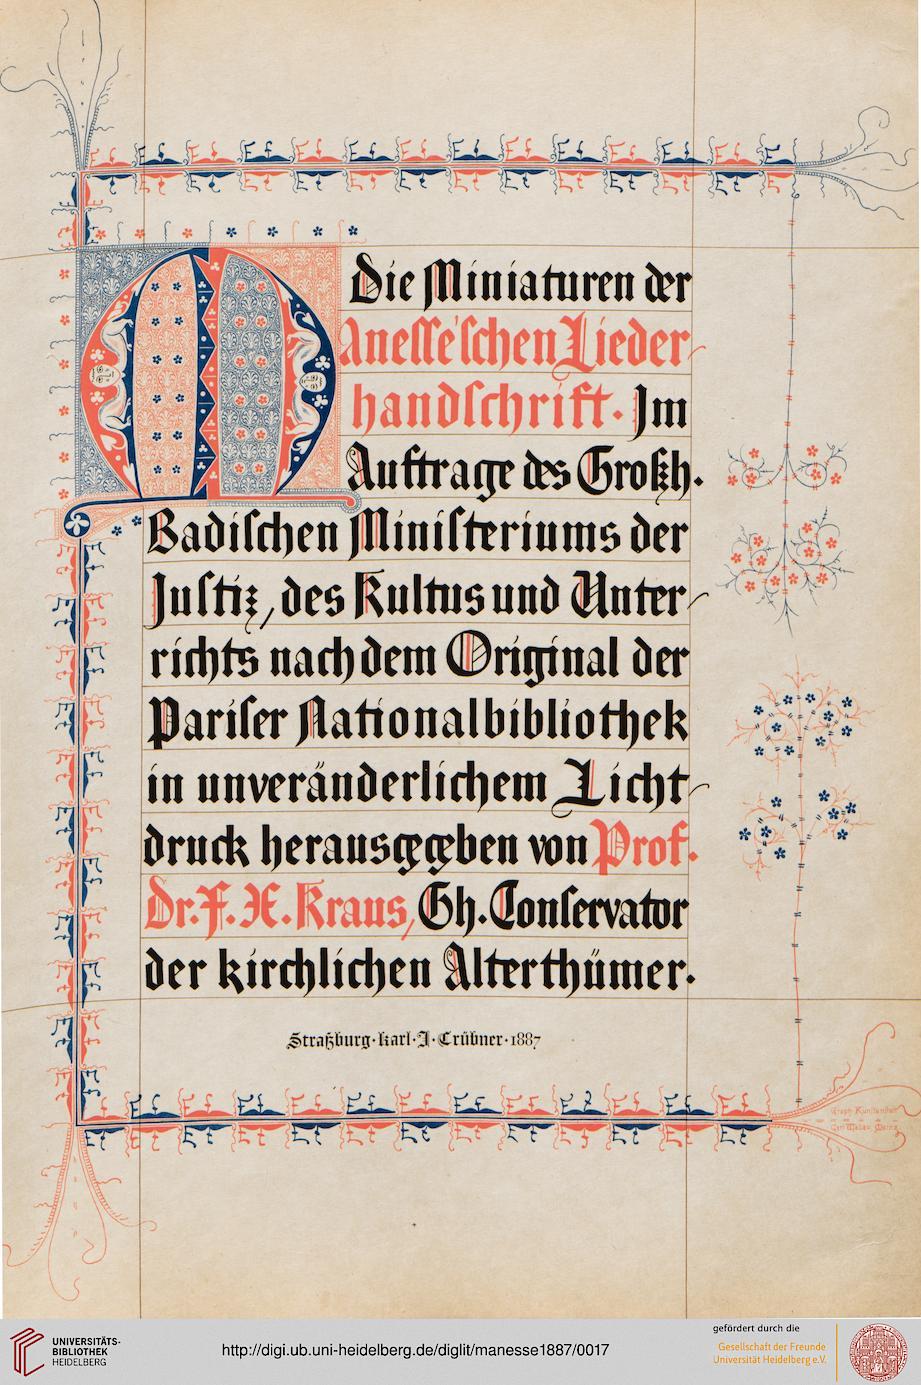 Die Miniaturen der
Maneſſe'ſchen Lieder-
handſchrift. Im
Auftrage des Großh.
Badiſchen Miniſteriums der
Juſtiz, des Kultus und Unter-
richts nach dem Original der
Pariſer Nationalbibliothek
in unveränderlichem Licht-
druck herausgegeben von Prof.
Dr. F. X. Kraus, Gh. Conſervator
der kirchlichen Alterthümer.
Straßburg · Karl · J · Trübner · 1887
Carl Wallau, Mainz
UNIVERSITÄTS-
BIBLIOTHEK
HEIDELBERG
http://digi.ub.uni-heidelberg.de/diglit/manesse1887/0017
gefördert durch die
Gesellschaft der Freunde
Universität Heidelberg e.V.